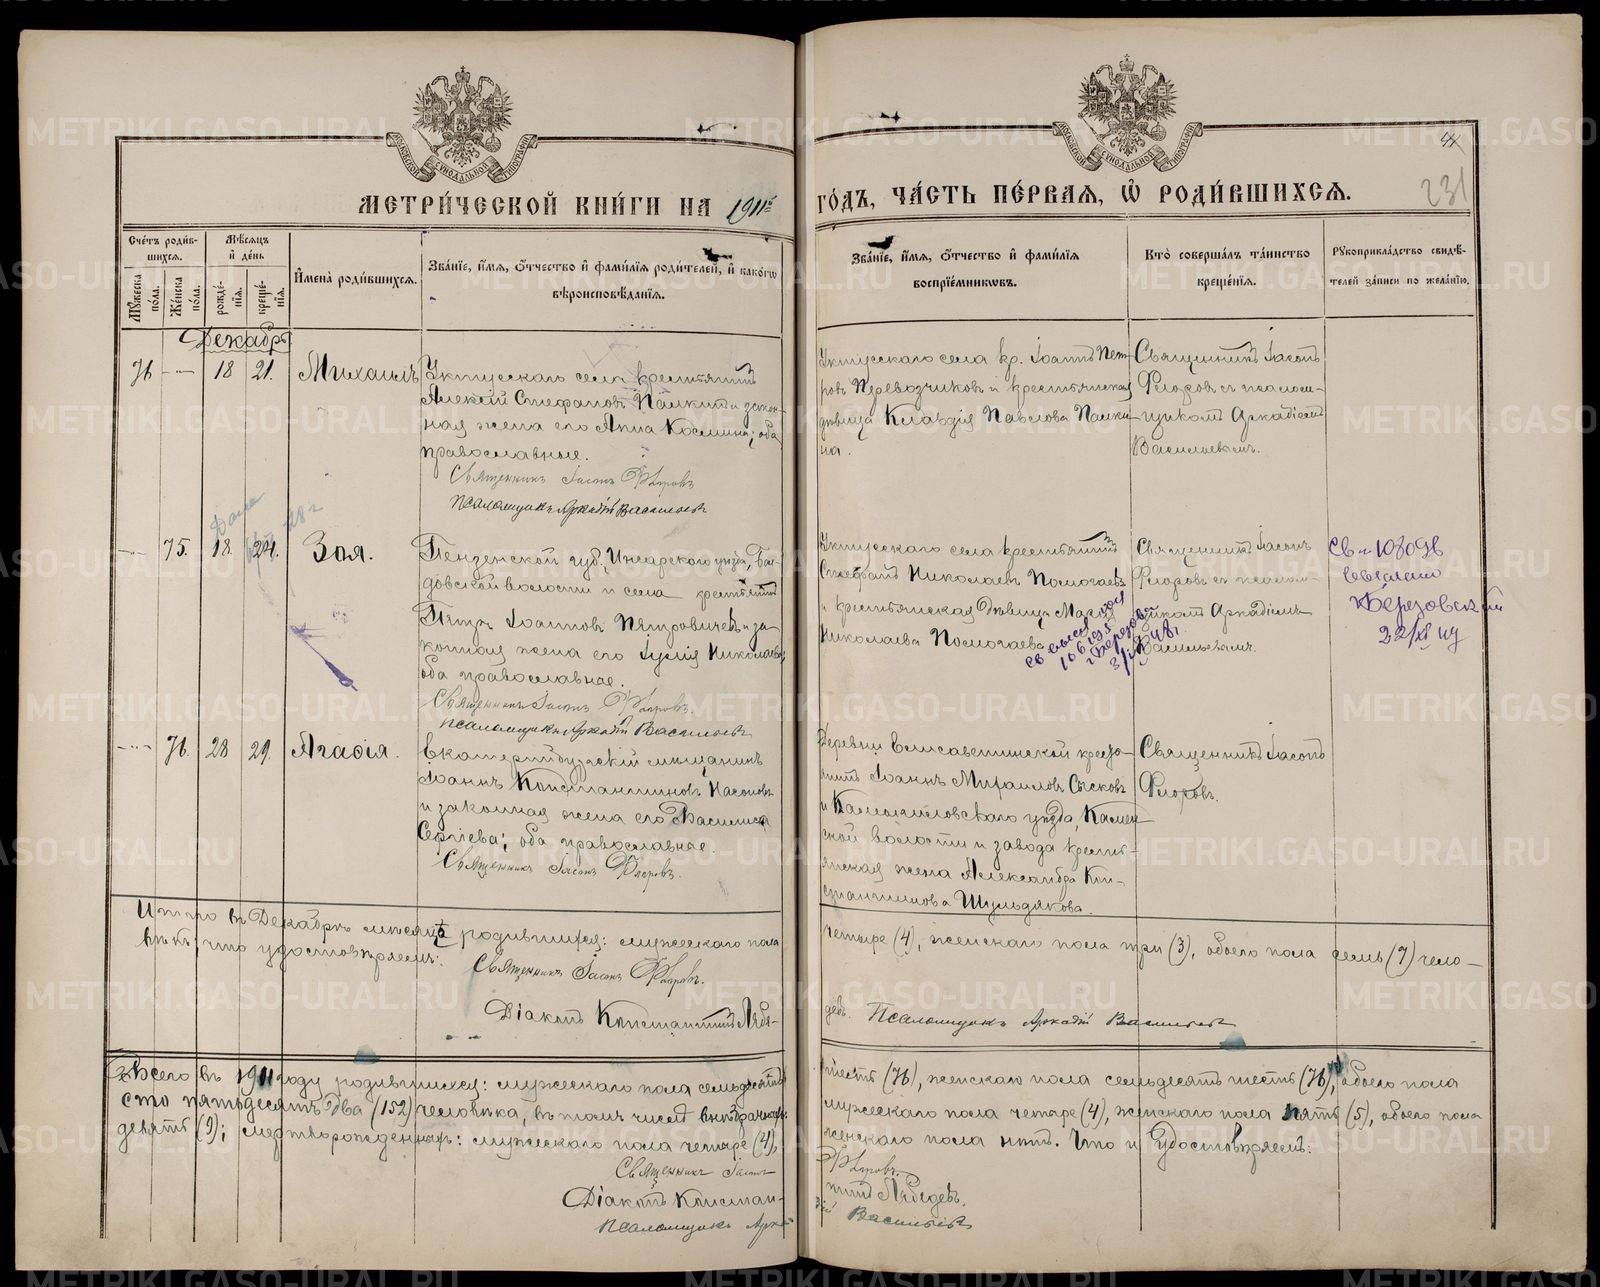 МЕТРИ́ЧЕСКОЙ КНИ́ГИ НА 1911й ГО́ДЪ, ЧА́СТЬ ПЕ́РВАЯ, Ѡ РОДИ́ВШИХСЯ.
231
Сче́тъ роди́в-
шихся.
Мѣ́сяцъ
и҆ де́нь
И҆мена̀ роди́вшихся.
Зва́нїе, и҆́мя, ѻ҆́тчество и҆ фами́лїя роди́телей, и҆ како́гѡ
вѣроисповѣ́данїя.
Зва́нїе, и҆́мя, ѻ҆́тчество и҆ фами́лїя
воспрїе́мниковъ.
Кто̀ соверша́лъ та́инство
креще́нїя.
Рꙋкоприкла́дство свидѣ́-
телей за́писи по жела́нїю.
Мꙋ́жеска
по́ла.
Же́нска
по́ла.
рожде́-
нїя.
креще́-
нїя.
Декабрь
76 — 18 21. Михаилъ
Уктусскаго села крестьянинъ
Алексій Стефановъ Палкинъ и закон-
ная жена его Анна Косьмина; оба
православные.
Священникъ Іасонъ Флоровъ
Псаломщикъ Аркадій Васильевъ
Уктусскаго села кр. Іоаннъ Пет-
ровъ Перевозчиковъ и крестьянская
дѣвица Клавдія Павлова Палки-
на.
Священникъ Іасонъ
Флоровъ съ псалом-
щикомъ Аркадіемъ
Васильевымъ.
— 75. 18. 24. Зоя.
Пензенской губ., Инсарскаго уѣзда,
довской волости и села крестьянинъ
Петръ Іоанновъ Петровичевъ и за-
конная жена его Іулія Николаева,
оба православные.
Священникъ Іасонъ Флоровъ.
Псаломщикъ Аркадій Васильевъ
Уктусскаго села крестьянинъ
Стефанъ Николаевъ Помогаевъ
и крестьянская дѣвица Марія
Николаева Помогаева
Священникъ Іасонъ
Флоровъ съ псалом-
щикомъ Аркадіемъ
Васильевымъ.
— 76. 28 29. Агафія.
Екатеринбургскій мѣщанинъ
Іоаннъ Константиновъ Насоновъ
и законная жена его Василиса
Сергіева; оба православные.
Священникъ Іасонъ Флоровъ.
Деревни Елисаветинской кресть-
янинъ Іоаннъ Михаиловъ Сысковъ
и Камышловскаго уѣзда, Камен-
ской волости и завода кресть-
янская жена Александра Кон-
стантинова Шульдякова.
Священникъ Іасонъ
Флоровъ.
Итого въ Декабрѣ мѣсяцѣ родившихся: мужескаго пола четыре (4), женскаго пола три (3), обоего пола семь (7) чело-
вѣкъ, что удостовѣряемъ:
Священникъ Іасонъ Флоровъ.
Діаконъ Константинъ Лебе-
девъ. Псаломщикъ Аркадій Васильевъ
Всего въ 1911 году родившихся: мужескаго пола семьдесятъ шесть (76), женскаго пола семьдесятъ шесть (76), обоего пола
сто пятьдесятъ два (152) человѣка, въ томъ числѣ внѣбрачныхъ: мужескаго пола четыре (4), женскаго пола пять (5), обоего пола
девять (9); мертворожденныхъ: мужескаго пола четыре (4), женскаго пола нѣтъ. Что и удостовѣряемъ:
Священникъ Іасонъ Флоровъ.
Діаконъ Константинъ Лебедевъ.
Псаломщикъ Аркадій Васильевъ